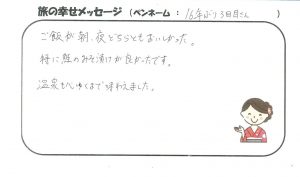 旅の幸せメッセージ（ペンネーム：16年ぶり3日目さん）
ご飯が朝、夜どちらともおいしかった。
特に鮭のみそ漬けが良かったです。
温泉もゆくまで味わえました。